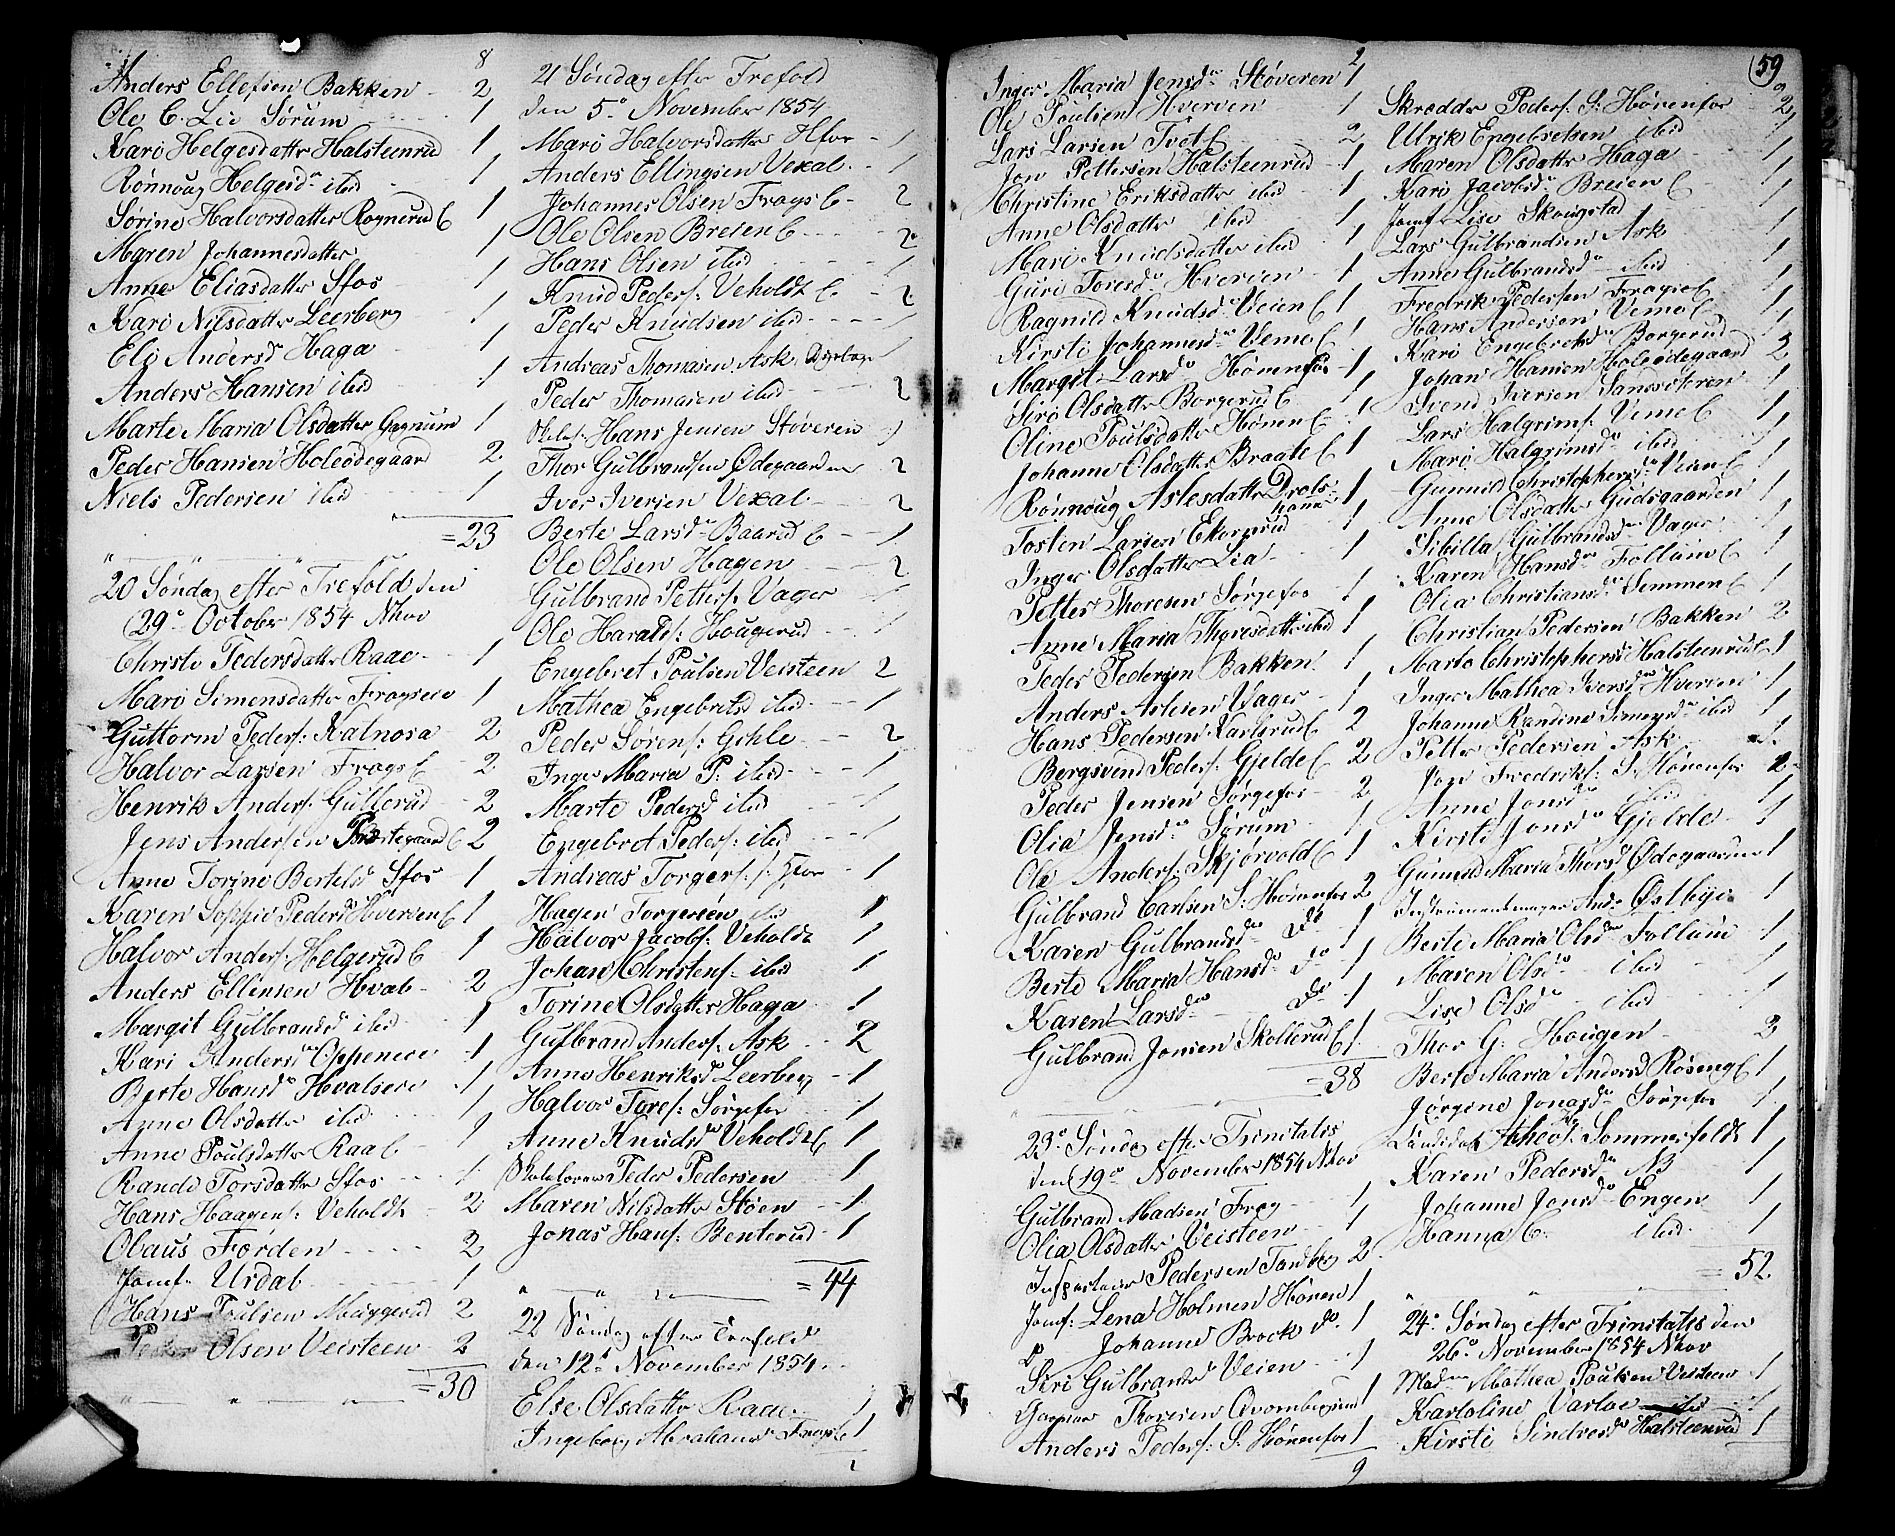 8
Anders Ellefsen Bakken 2
Ole C. Lie Sørum 1
Kari Helgesdatter Halsteenrud 1
Rønnoug Helgesd. ibid 1
Sørine Halvorsdatter Rognerud E 1
Maren Johannesdatter 1
Anne Eliasdatter Sfos 1
Kari Nilsdatter Leerberg 1
Eli Andersd. Haga 1
Anders Hansen ibid 1
Marte Maria Olsdatter Gagnum 1
Peder Hansen Holeødegaard 2
Niels Pedersen ibid 1
= 23
20 Søndag efter Trefold. den
29de October 1854 Nhov
Christi Pedersdatter Raae 1
Mari Simensdatter Frogseie 1
Guttorm Peders: Kalnosa 2
Halvor Larsen Frogs E 2
Henrik Anders: Gullerud 2
Jens Andersen Præstegaard E 2
Anne Torine Bertelsd Sfos 1
Karen Sophie Pedersd Hversen E 1
Halvor Anders: Helgerud E 1
Anders Ellensen Hval 2
Margit Gulbrandsd ibid 1
Kari Andersd Oppeneie 1
Berte Hansd. Hvalseie 1
Anne Olsdatter ibid 1
Anne Poulsdatter Raa E 1
Randi Torsdatter Sfos 1
Hans Haagens: Veholdt 2
OlausFørden 2
Jomf. Urdal 1
Hans Poulsen Muggerud 2
Peder Olsen Veisteen 2
= 30
21 Søndag efter Trefold
den 5te November 1854
Mari Halvorsdatter Hfos 1
Anders Ellingsen Vexal 1
Johannes Olsen Frogs E 2
Ole Olsen Breien E 2
Hans Olsen ibid 1
Knud Peders: Veholdt E 2
Peder Knudsen ibid 1
Andreas Thomasen Ask 1
Peder Thomasen ibid 2
Hans Jensen Støveren 1
Thor Gulbrandsen Ødegaarden 2
Iver Iversen Vexal 2
Berte Larsd. Baarud E 1
Ole Olsen Hagen 2
Gulbrand Petters: Vager 1
Ole Haralds: Hougerud 1
Engebret Poulsen Veisteen 2
Mathea Engebretsd ibid 1
Peder Sørens: Gihle 2
Inger Maria P. ibid 1
Marte Pedersd ibid 1
Engebret Peders: ibid 1
Andreas Torgers: 1
Hagen Torgersen ibid 1
Halvor Jacobs: Veholdt 1
Johan Christens: ibid 1
Torine Olsdatter Haga 1
Gulbrand Anders: Ask 2
Anne Henriksd Leerberg 1
Halvor Tores: Sørgefos 1
Anne Knudsd Veholdt E 1
Peder Pedersen 1
Maren Nilsdatter Støen 1
Jonas Hans: Benterud 1
= 44
22 Søndag efter Trefold
den 12te November 1854
Else Olsdatter Raae 1
Ingeborg Abrahamsd Frogs E 1
2
2
Inger Maria Jensd. Støveren 1
Ole Poulsen Hversen 1
Lars Larsen Tvet E 2
Jon Pettersen Halsteenrud 1
Christine Eriksdatter ibid 1
Anne Olsdatter ibid 1
Mari Knudsdatter ibid 1
Guri Toresd. Hversen 1
Ragnild Knudsd. Veien E 1
Kirsti Johannesd. Veme E 1
Margit Larsd. Hønenfos 1
Siri Olsdatter Borgerud E 1
Oline Poulsdatter Hønen E 1
Johanne Olsdatter Braate E 1
Rønnoug Aslesdatter Drols- 1
Tosten Larsen Ekornrud 1
Inger Olsdatter Lia 1
Petter Thoresen Sørgefos 1
Anne Maria Thoresdatter ibid 1
Peder Pedersen Bakken 1
Anders Aslesen Vager 1
Hans Pedersen Karlsrud E 2
Bergsvend Peders: Gjelde E 2
Peder Jensen Sørgefos 2
Olia Jensd. Sørum 1
Ole Anders: Skjørvold E 1
Gulbrand Carlsen S. Hønenfos 2
Karen Gulbrandsd. do 1
Berte Maria Hansd. do 1
Karen Larsd. do 1
Gulbrand Jonsen Skollerud E 1
= 38
23de Søndag efter Trinitatis
den 19de November 1854 Nhov
Gulbrand Madsen Frog 1
Olia Olsdatter Veisteen 1
Pedersen Tandbg 2
Jomf: Lena Holmen Hønen 1
do Johanne Brock do 1
Siri Gulbrandsd Veien 1
Thoresen 1
Anders Peders: S. Hønenfos 1
9
59
9
Skrædder Peders: S. Hønenfos 2
Ulrik Engebretsen ibid 1
Maren Olsdatter Haga 1
Kari Jacobsd. Breien E 1
Jomf Lise Skougstad 1
Lars Gulbrandsen Ask 1
Anne Gulbrandsd. ibid 1
Fredrik Pedersen Frogs E 1
Hans Andersen Veme E 1
Kari Engebretsd. Borgerud 1
Johan Hansen Holeødegaard 2
Svend Iversen 1
Lars Halgrims: Veme E 1
Mari Halgrimsd. ibid 1
Gunnild Christophersd. Veien E 1
Anne Olsdatter Gudsgaarden 1
Sibilla Gulbrandsd. Vager 1
Karen Hansd. Follum E 1
Olia Christiansd. Semmen E 1
Christian Pedersen Bakken 2
Marte Christophersd Halsteenrud E 1
Inger Mathea Iversd. Hversen 1
Johanne Randine Simensd. ibid 1
Petter Pedersen Ask 1
Jon Fredriks: S. Hønenfos 2
Anne Jonsd. ibid 1
Kirsti Jonsd. Gjelde 1
Gunnild Maria Thorsd Ødegaarden 1
Instrumentmager And. Østligi 1
Berte Maria Olsd. Follum 1
Maren Olsd. ibid 1
Lise Olsd. ibid 1
Thor G. Hougen 3
Berte Maria Andersd Røseng E 1
Jørgine Jonasd. Sørgefos 1
Sommerfeldt 1
Karen Pedersd. NB 1
Johanne Jensd. Engen 1
Hanna C. ibid 1
= 52
24de Søndag efter Trinitatis den
26de November 1854 Nhov
Mad. Mathea Poulsen Veisteen 1
Karoline Varloe 1
Kirsti Sindresd Halsteenrud 1